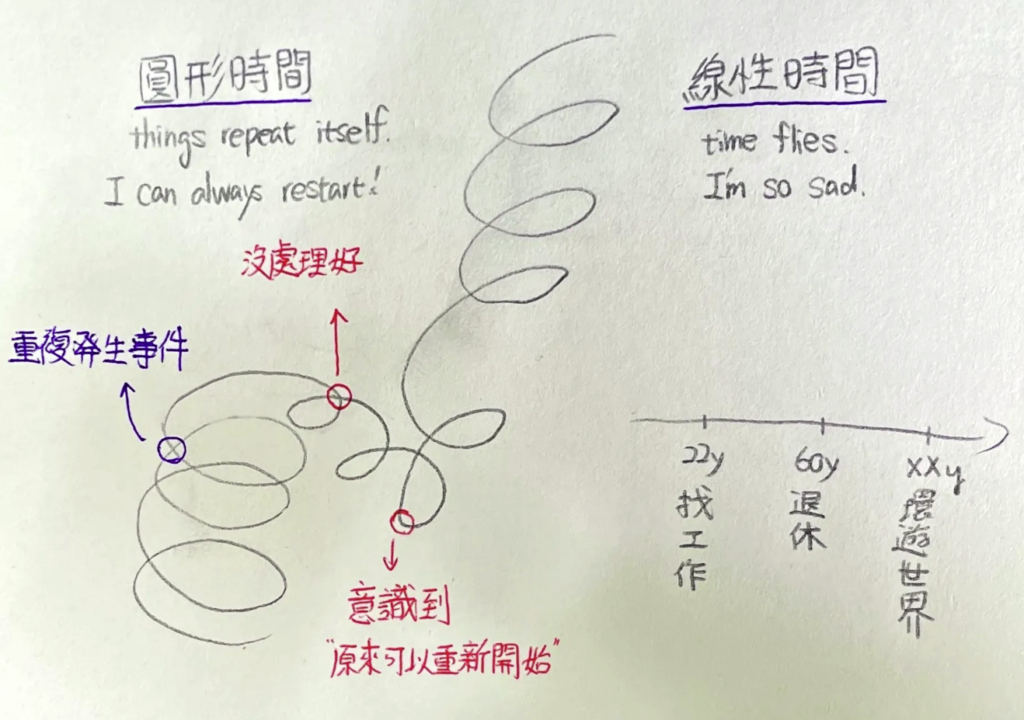 圓形時間
things repeat itself.
I can always restart!
沒處理好
重復發生事件
意識到
"原來可以重新開始"
線性時間
time flies.
I'm so sad.
22y
找工作
60y
退休
xxy
環遊世界